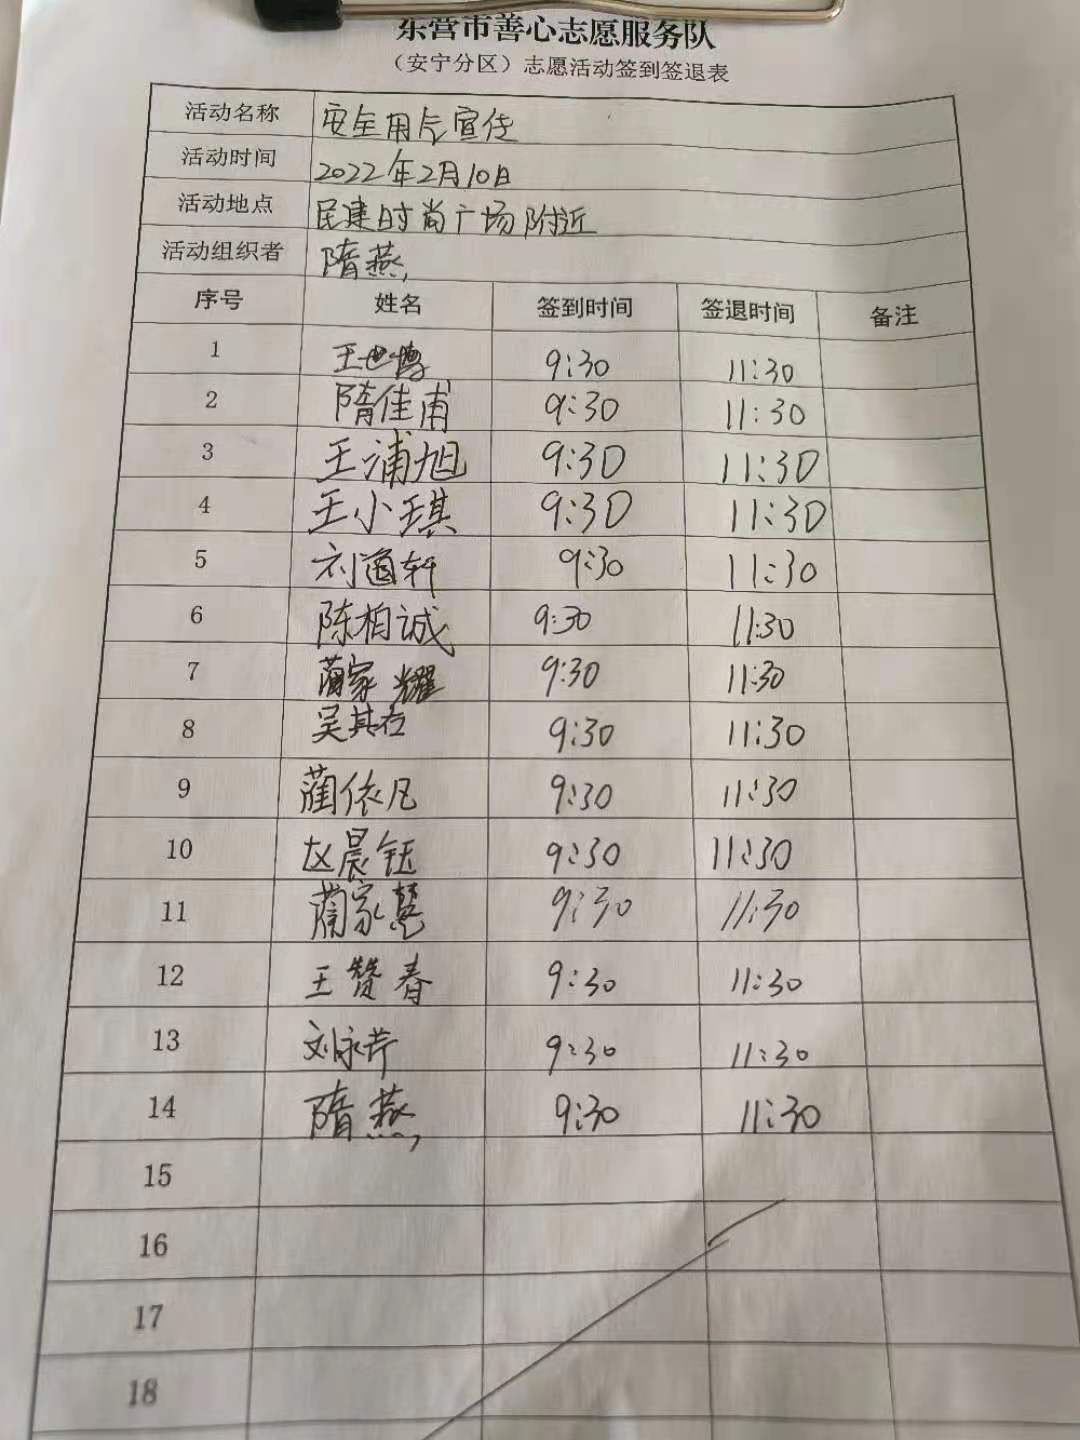 东营市善心志愿服务队
（安宁分区）志愿活动签到签退表
活动名称 安全用气宣传
活动时间 2022年2月10日
活动地点 民建时尚广场附近
活动组织者 隋燕
序号 姓名 签到时间 签退时间 备注
1 王世博 9:30 11:30
2 隋佳甫 9:30 11:30
3 王浦旭 9:30 11:30
4 王小琪 9:30 11:30
5 刘 轩 9:30 11:30
6 陈柏诚 9:30 11:30
7 蔺家耀 9:30 11:30
8 吴其 9:30 11:30
9 蔺依凡 9:30 11:30
10 赵晨钰 9:30 11:30
11 蔺家慧 9:30 11:30
12 王赞春 9:30 11:30
13 刘咏芹 9:30 11:30
14 隋燕 9:30 11:30
15
16
17
18